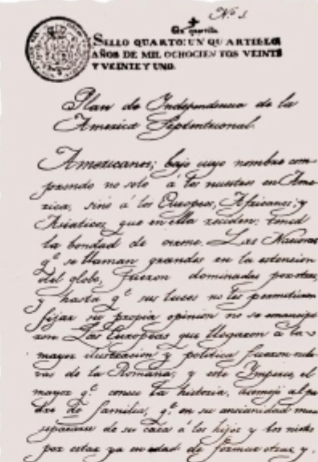 No. 1
Un quartillo
SELLO QUARTO: UN QUARTILLO
AÑOS DE MIL OCHOCIENTOS VEINTE
Y VEINTE Y UNO.
Plan de Independencia de la
America Septentrional.
Americanos; bajo cuyo nombre com-
prendo no solo á los nacidos en Ame-
rica, sino á los Europeos, Africanos, y
Asiaticos, que en ella residen: tened
la bondad de oirme. Las Naciones
q.e se llaman grandes en la extension
del globo, fueron dominadas por otras,
y hasta q.e sus luces no les permitieron
fijar su propia opinion no se emancipa
ron. Las Europeas que llegaron á la
mayor ilustracion y politica fueron escla
vas de la Romana; y este Imperio, el
mayor q.e conoce la historia, asemejó al pa
dre de familias, q.e en su ancianidad mira
separarse de su casa á los hijos y los nietos
por estar ya en edad de formar otras, y